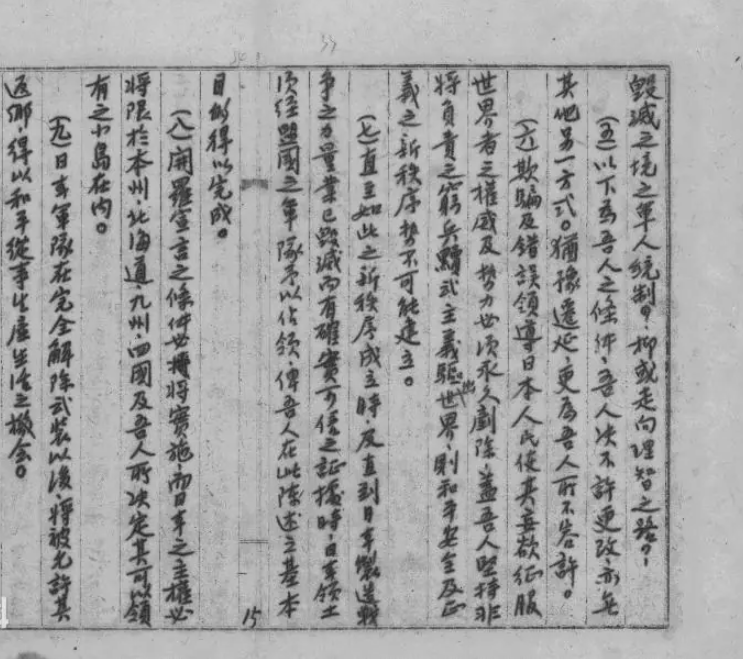 毀滅之境之軍人統制？抑或走向理智之路？
(五)以下為吾人之條件，吾人決不許更改，亦無
其他另一方式。猶豫遷延，更為吾人所不容許。
(六)欺騙及錯誤領導日本人民使其妄欲征服
世界者之權威及勢力必須永久剷除，蓋吾人堅持非
將負責之窮兵黷武主義驅出世界，則和平安全及正
義之新秩序勢不可能建立。
(七)直至如此之新秩序成立時，及直到日本製造戰
爭之力量業已毀滅而有確實可信之証據時，日本領土
須經盟國之軍隊予以佔領，俾吾人在此陳述之基本
目的得以完成。
15
(八)開羅宣言之條件必將實施，而日本之主權必
將限於本州，北海道，九州，四國及吾人所決定其可以領
有之小島在內。
(九)日本軍隊在完全解除武裝以後，將被允許其
返鄉，得以和平從事生產生活之機會。